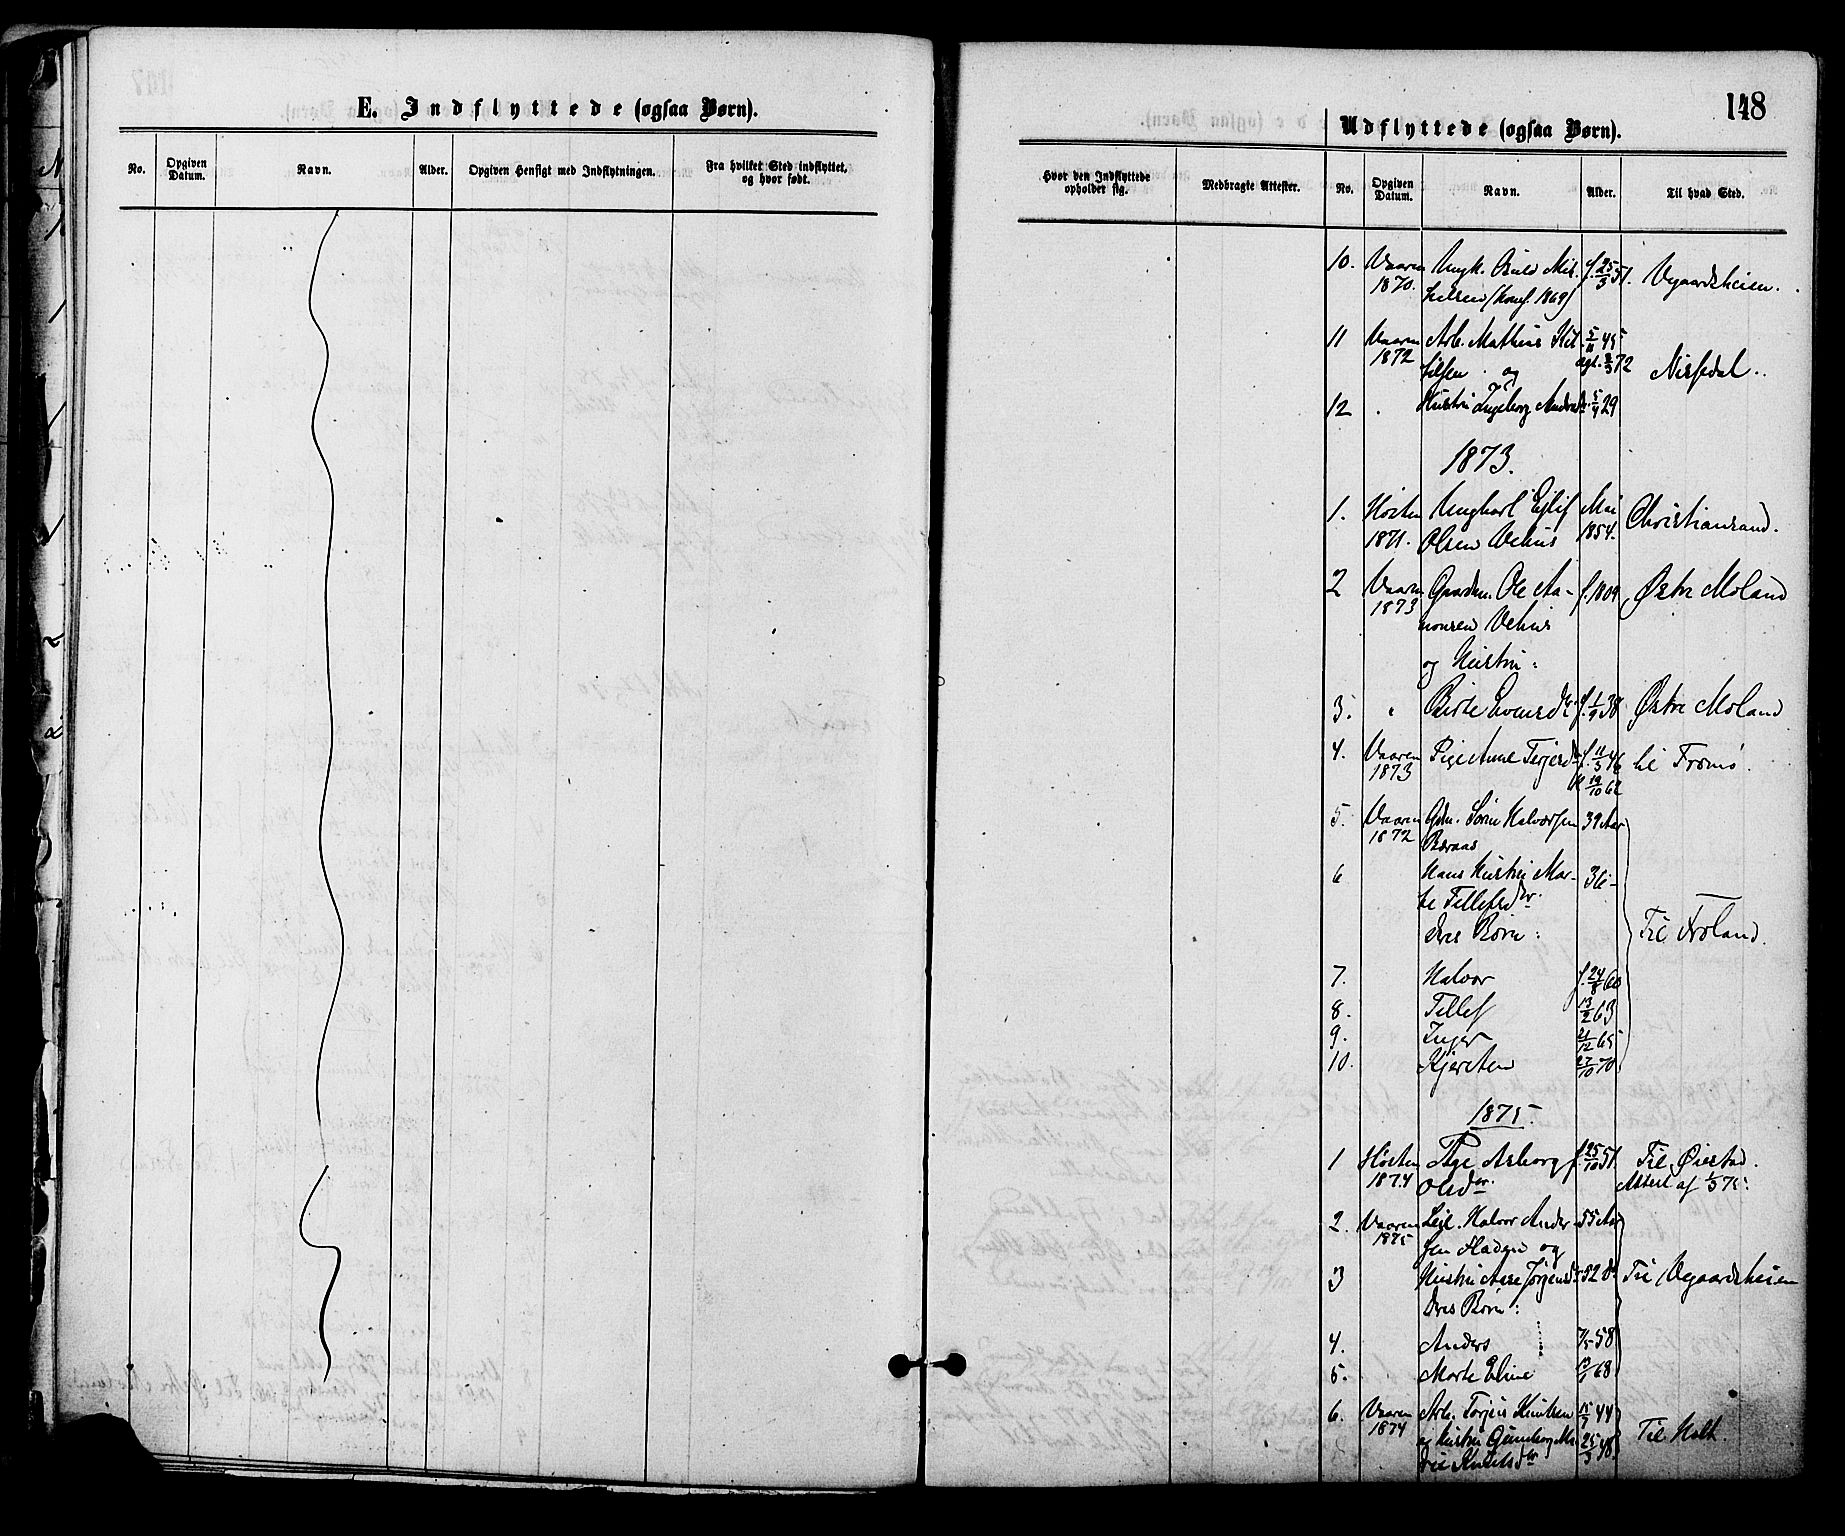 E. Indflyttede (ogsaa Børn).
No.
Opgiven Datum.
Navn.
Alder.
Opgiven Hensigt med Indflytningen.
Fra hvilket Sted indflyttet, og hvor født.
148
Udflyttede (ogsaa Børn).
Hvor den Indflyttede opholder sig.
Medbragte Attester.
No.
Opgiven Datum.
Navn.
Alder.
Til hvad Sted.
10. Vaaren Ungk. f. 25/3 51. Vegaardsheien.
1870. (konf. 1869)
11 Vaaren Arb. Mathias Kit- 45
1872 tilsen og 72 Nissedal.
12 Hustru Ingeborg Andersdr. 5/4 29
1873.
1. Høsten Ungkarl Ejlif Mai Christiansand.
1871. Olsen Vehus 1854.
2 Vaaren Gaardm. Ole Aa- f. 1809 Østre Moland
1873 nonsen Vehus
og Hustru:
3. Berte Evensdr f. 1/9 38 Østre Moland
4. Vaaren Pige Anne Terjesdr f. 11/3 46 til Tromø.
1873 19/10 62
5. Vaaren Gdm. Søren Halvorsen 39 Aar
1872 Beraas
6 Hans Hustru Mar- 36 -
te Tellefsdr.
deres Børn: Til Froland.
7. Halvor f. 24/8 60
8. Tellef 13/2 63
9. Inger 21/12 65
10. Kjersten 27/10 70
1875.
1 Høsten Pige Asborg f. 25/10 51. Til Øiestad.
1874 Olsdr. Attest af 1/5 75.
2. Vaaren Lejl. Halvor Ander- 55 Aar
1875 sen og
3 Hustru Aase Jørgensdr 52 do Til Vegaardsheien
deres Børn:
4. Anders 7/5 58
5. Marte Eline 68
6. Vaaren Arb. Terjus Knutsen 15/7 44
1874 og Hustru Gunborg Ma- 25/3 48. Til Holt.
rie Knutsdr